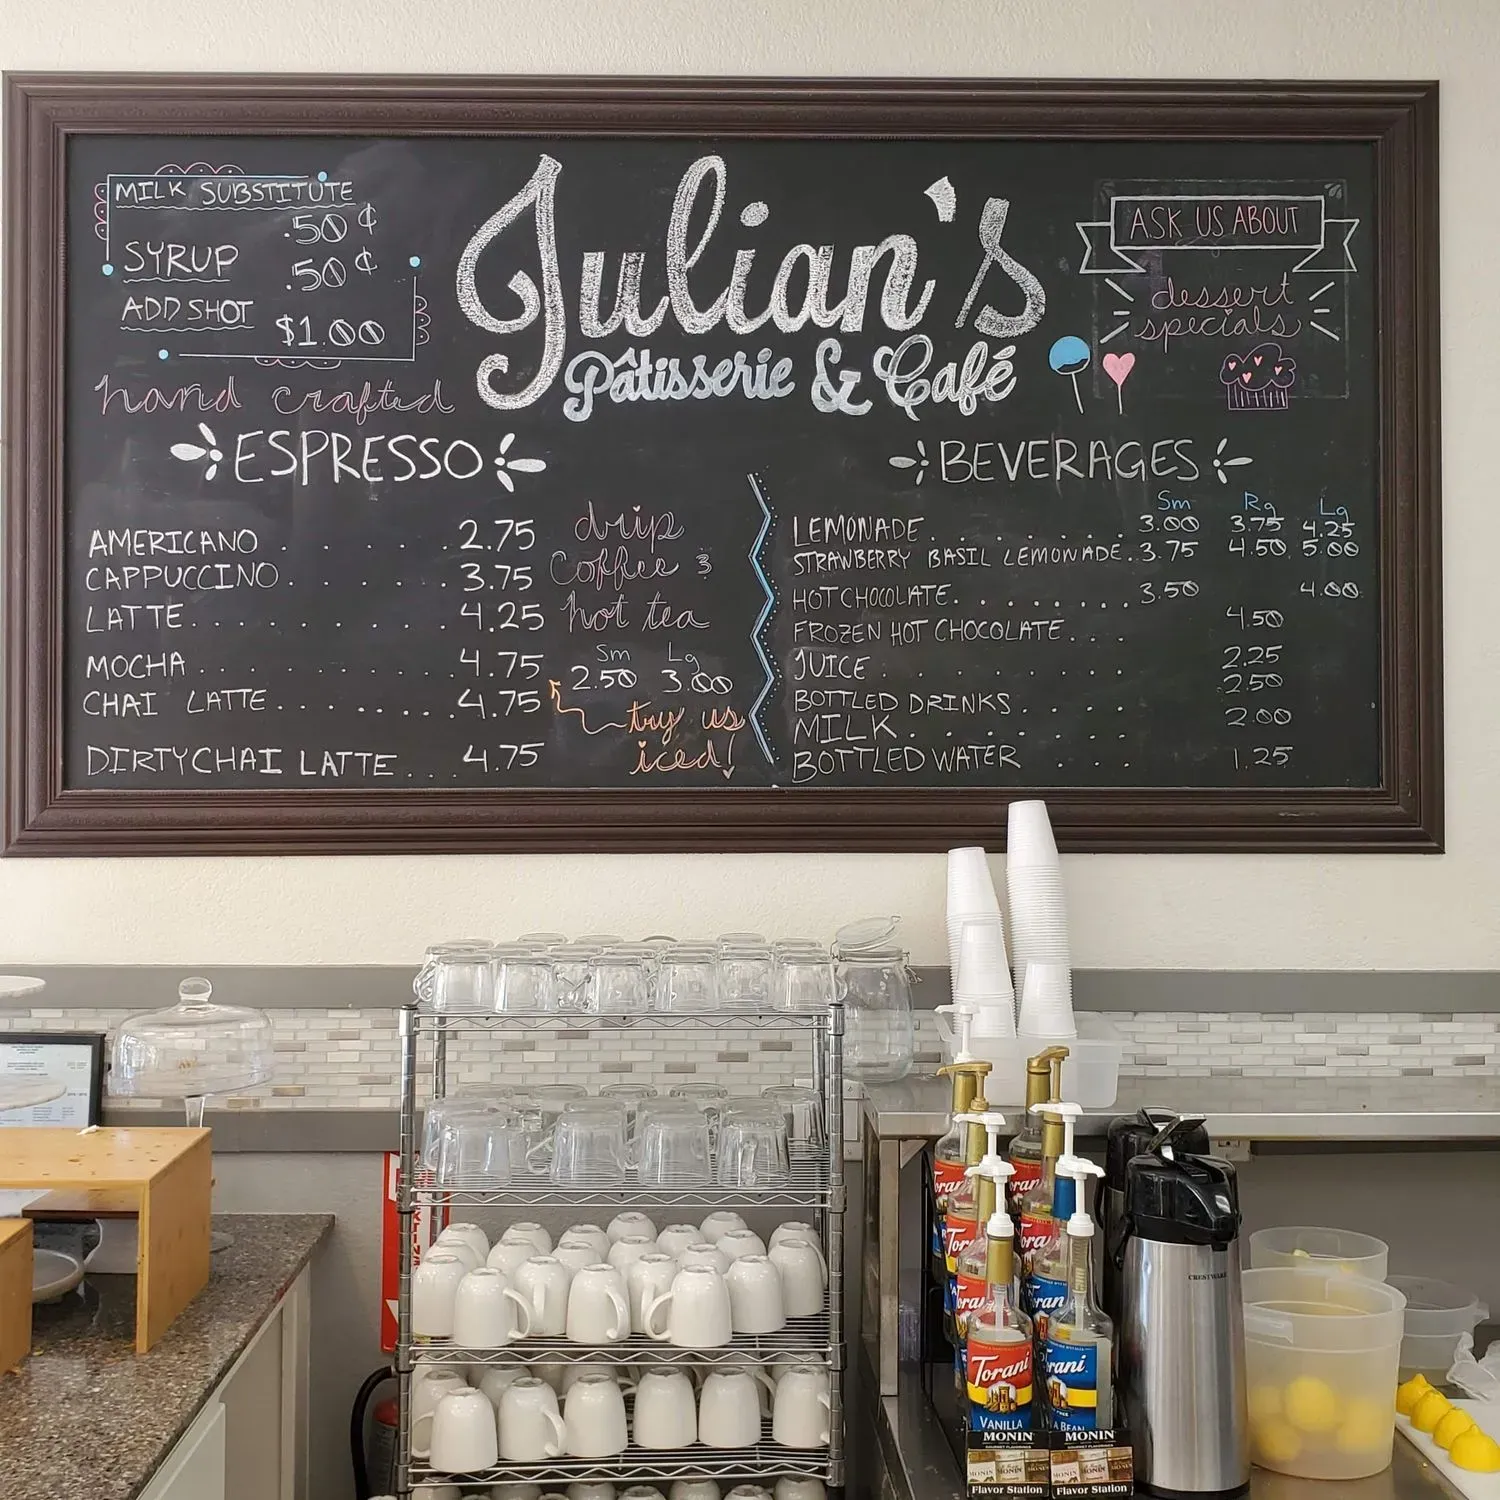 MILK SUBSTITUTE
.50 ¢
SYRUP
.50 ¢
ADD SHOT
$1.00
Julian's
Pâtisserie & Café
ASK US ABOUT
dessert
specials
hand crafted
ESPRESSO
AMERICANO . . . . . . 2.75
CAPPUCCINO . . . . . . 3.75
LATTE . . . . . . . . 4.25
MOCHA . . . . . . . . 4.75
CHAI LATTE . . . . . . . . 4.75
DIRTY CHAI LATTE . . . 4.75
drip
coffee &
hot tea
Sm Lg
2.50 3.00
try us
iced!
BEVERAGES
Sm Rg Lg
LEMONADE . . . . . . . 3.00 3.75 4.25
STRAWBERRY BASIL LEMONADE . 3.75 4.50 5.00
HOT CHOCOLATE . . . . . . . . 3.50 4.00
FROZEN HOT CHOCOLATE . . . 4.50
JUICE . . . . . . . 2.25
BOTTLED DRINKS . . . . 2.50
MILK . . . . . . . 2.00
BOTTLED WATER . . . . 1.25
CRESTWARE
Torani
VANILLA
Torani
MONIN
Flavor Station
MONIN
Flavor Station